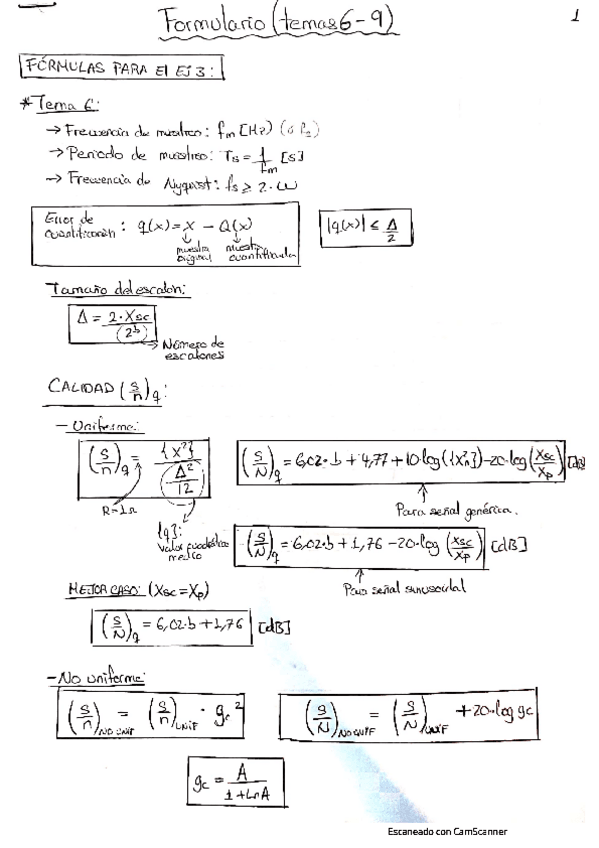 Formulario (temas 6-9)
1
FÓRMULAS PARA El EJ 3:
* Tema 6:
→ Frecuencia de muestreo: fm [Hz] (ó fs)
→ Periodo de muestreo: Ts = 1/fm [s]
→ Frecuencia de Nyquist: fs ≥ 2·W
Error de cuantificación: q(x) = x - Q(x)
muestra original
muestra cuantificada
|q(x)| ≤ Δ/2
Tamaño del escalón:
Δ = 2·Xsc/(2^b)
→ Número de escalones
CALIDAD (s/n)q:
- Uniforme:
(s/n)q = {x²}/(Δ²/12)
R=1Ω
{q}: valor cuadrático medio
(S/N)q = 6,02·b + 4,77 + 10·log({Xn²}) - 20·log(Xsc/Xp) [dB]
Para señal genérica.
(S/N)q = 6,02·b + 1,76 - 20·log(Xsc/Xp) [dB]
Para señal sinusoidal
MEJOR CASO: (Xsc = Xp)
(S/N)q = 6,02·b + 1,76 [dB]
- No uniforme:
(s/n)NO UNIF = (s/n)UNIF · gc²
(S/N)NO UNIF = (S/N)UNIF + 20·log gc
gc = A/(1+LnA)
Escaneado con CamScanner